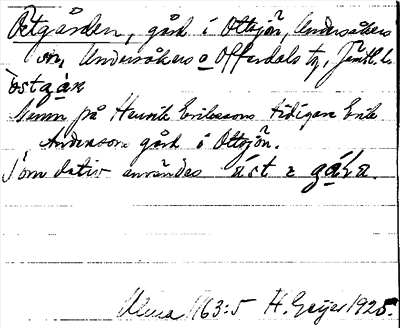 Östgården, gård i Ottsjön, Undersåkers
sn, Undersåkers o Offerdals tg, Jämtl. l.
östgaɽn
Namn på Henrik Erikssons tidigare Erik
Anderssons gård i Ottsjön.
Som dativ användes
Ulma 163:5 H. Geijer 1925.